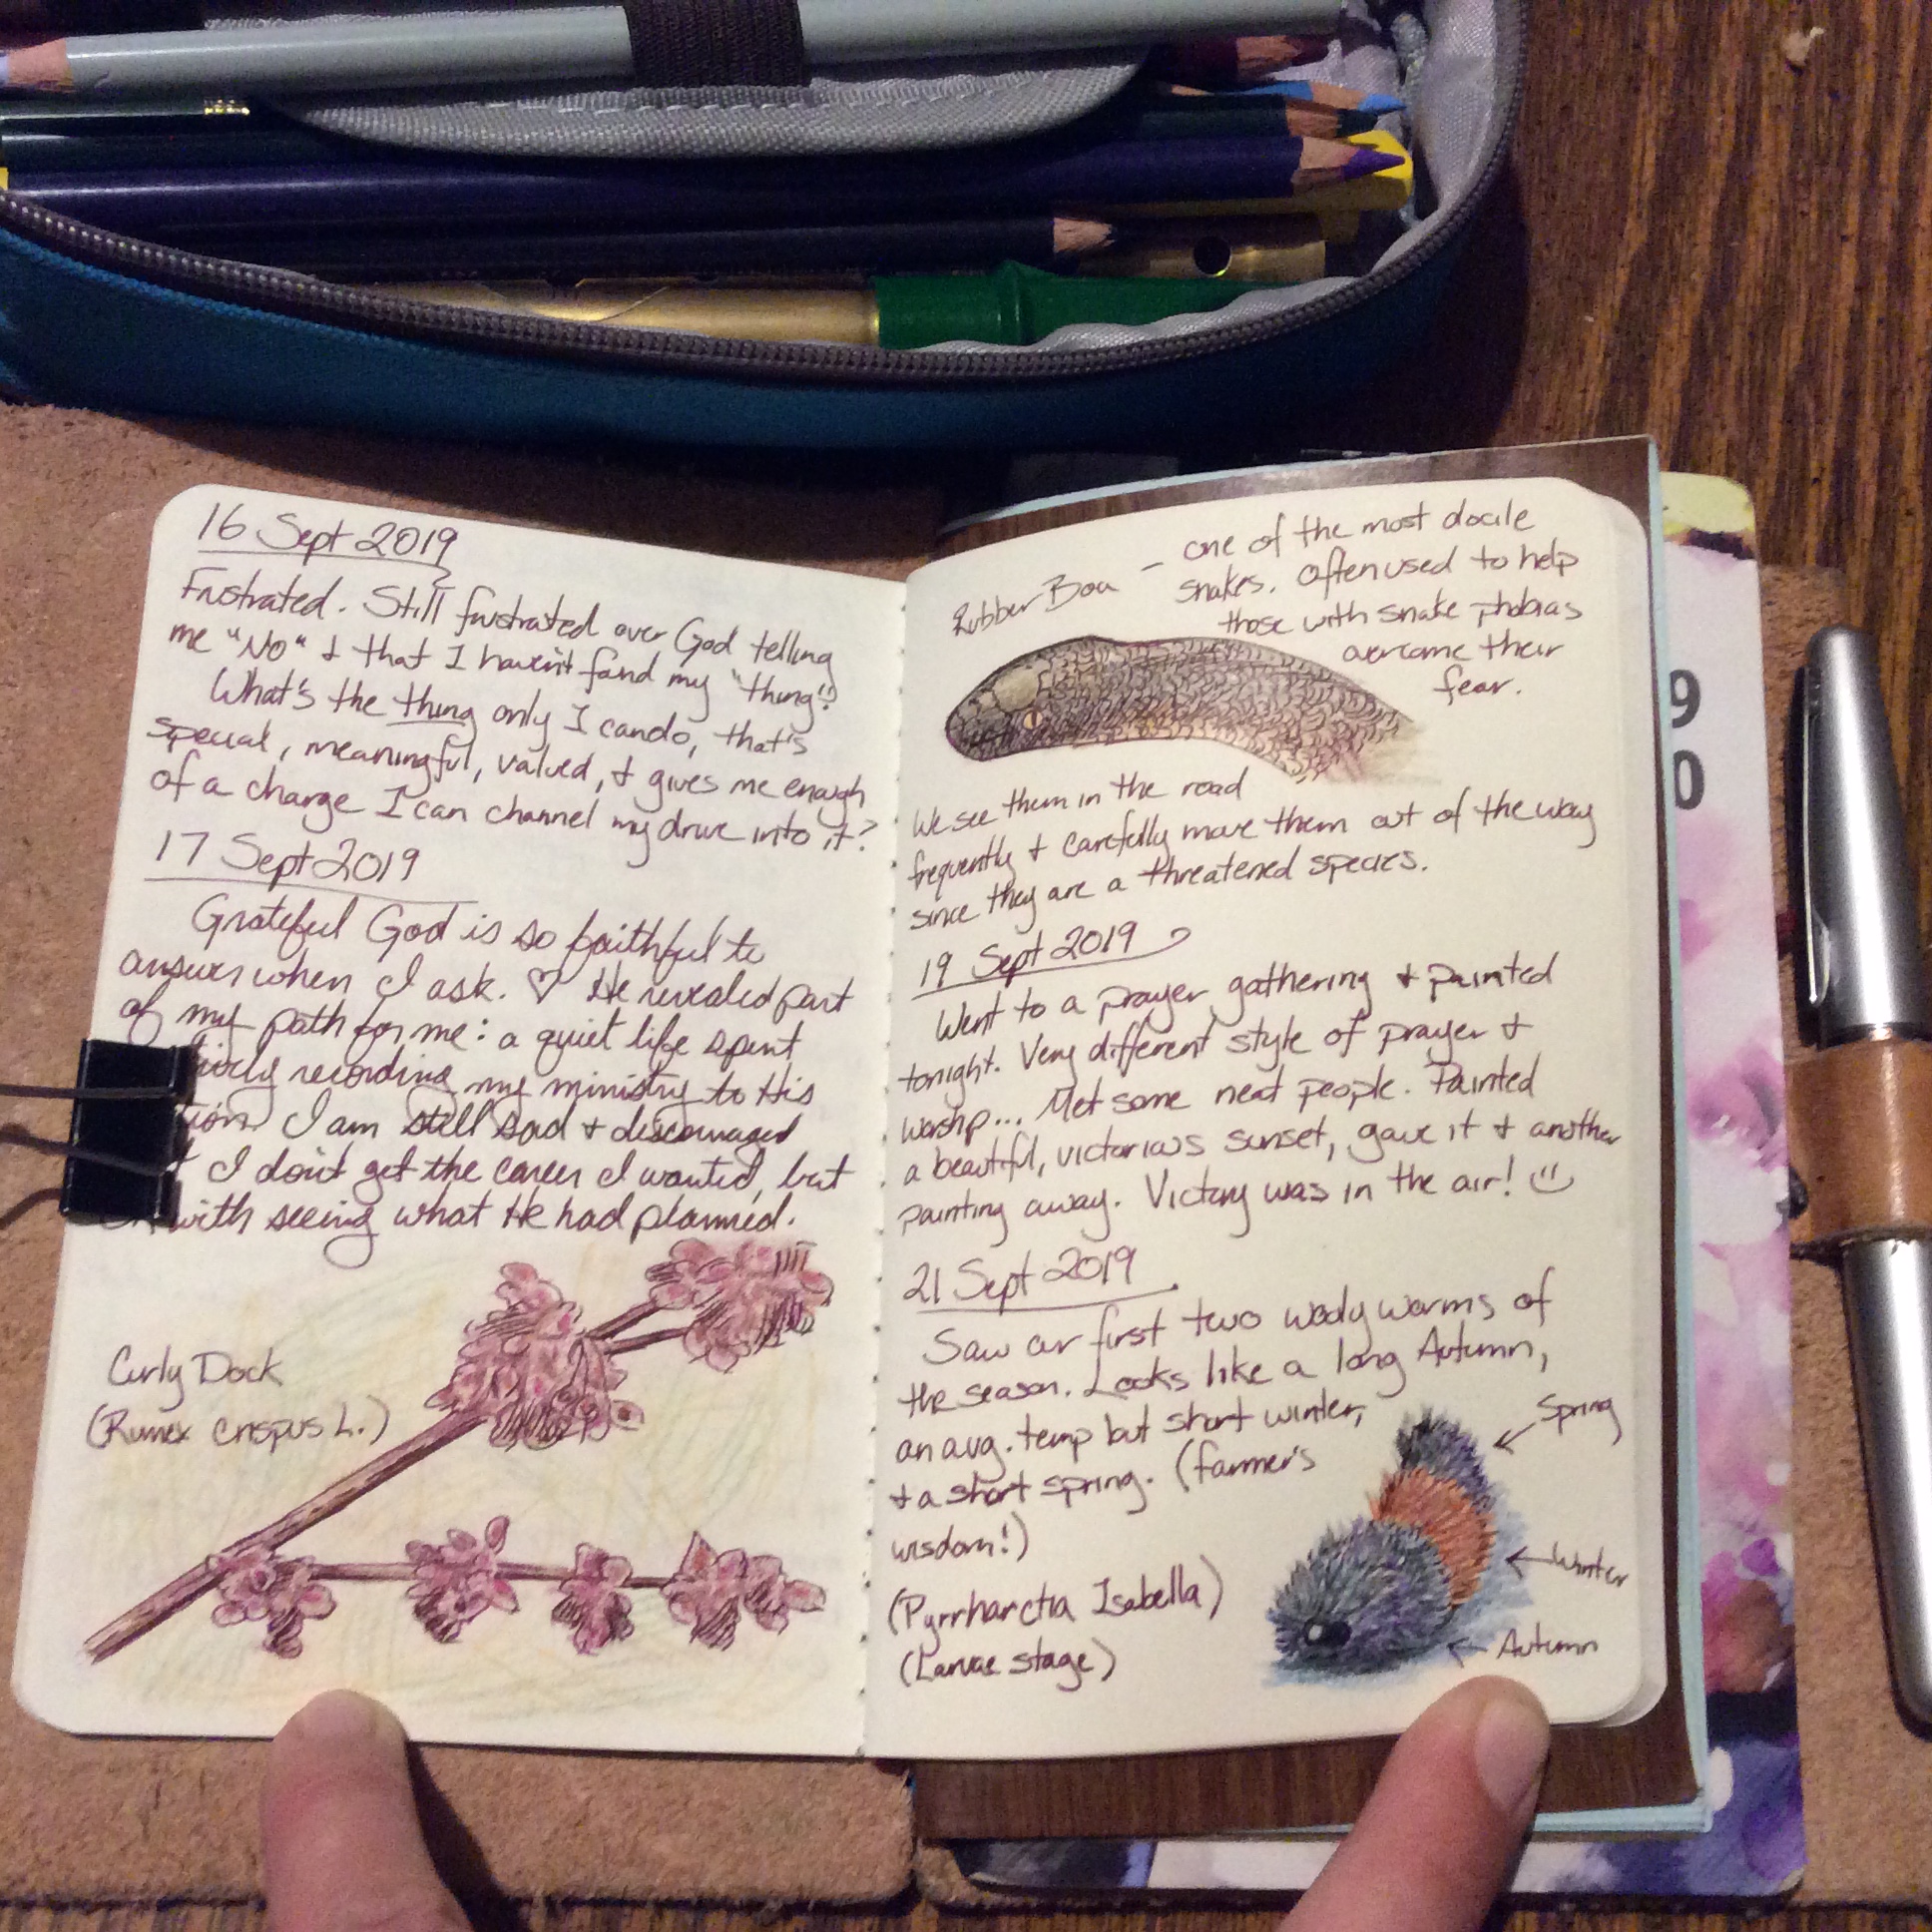 16 Sept 2019
Frustrated. Still frustrated over God telling
me "No" & that I haven't found my "thing".
What's the thing only I can do, that's
special, meaningful, valued, & gives me enough
of a charge I can channel my drive into it?
17 Sept 2019
Grateful God is so faithful to
answer when I ask. ♡ He revealed part
of my path for me: a quiet life spent
recording my ministry to His
I am still sad & discouraged
I don't get the career I wanted, but
with seeing what He had planned.
Curly Dock
(Rumex crispus L.)
Rubber Boa - one of the most docile
snakes. Often used to help
those with snake phobias
overcome their
fear.
We see them in the road
frequently & carefully move them out of the way
since they are a threatened species.
19 Sept 2019
Went to a prayer gathering & painted
tonight. Very different style of prayer &
worship... Met some neat people. Painted
a beautiful, victorious sunset, gave it & another
painting away. Victory was in the air! :)
21 Sept 2019
Saw our first two wooly worms of
the season. Looks like a long Autumn,
an avg. temp but short winter,
& a short spring. (farmer's
wisdom!)
(Pyrrharctia Isabella)
(Larvae stage)
Spring
Winter
Autumn
9
0